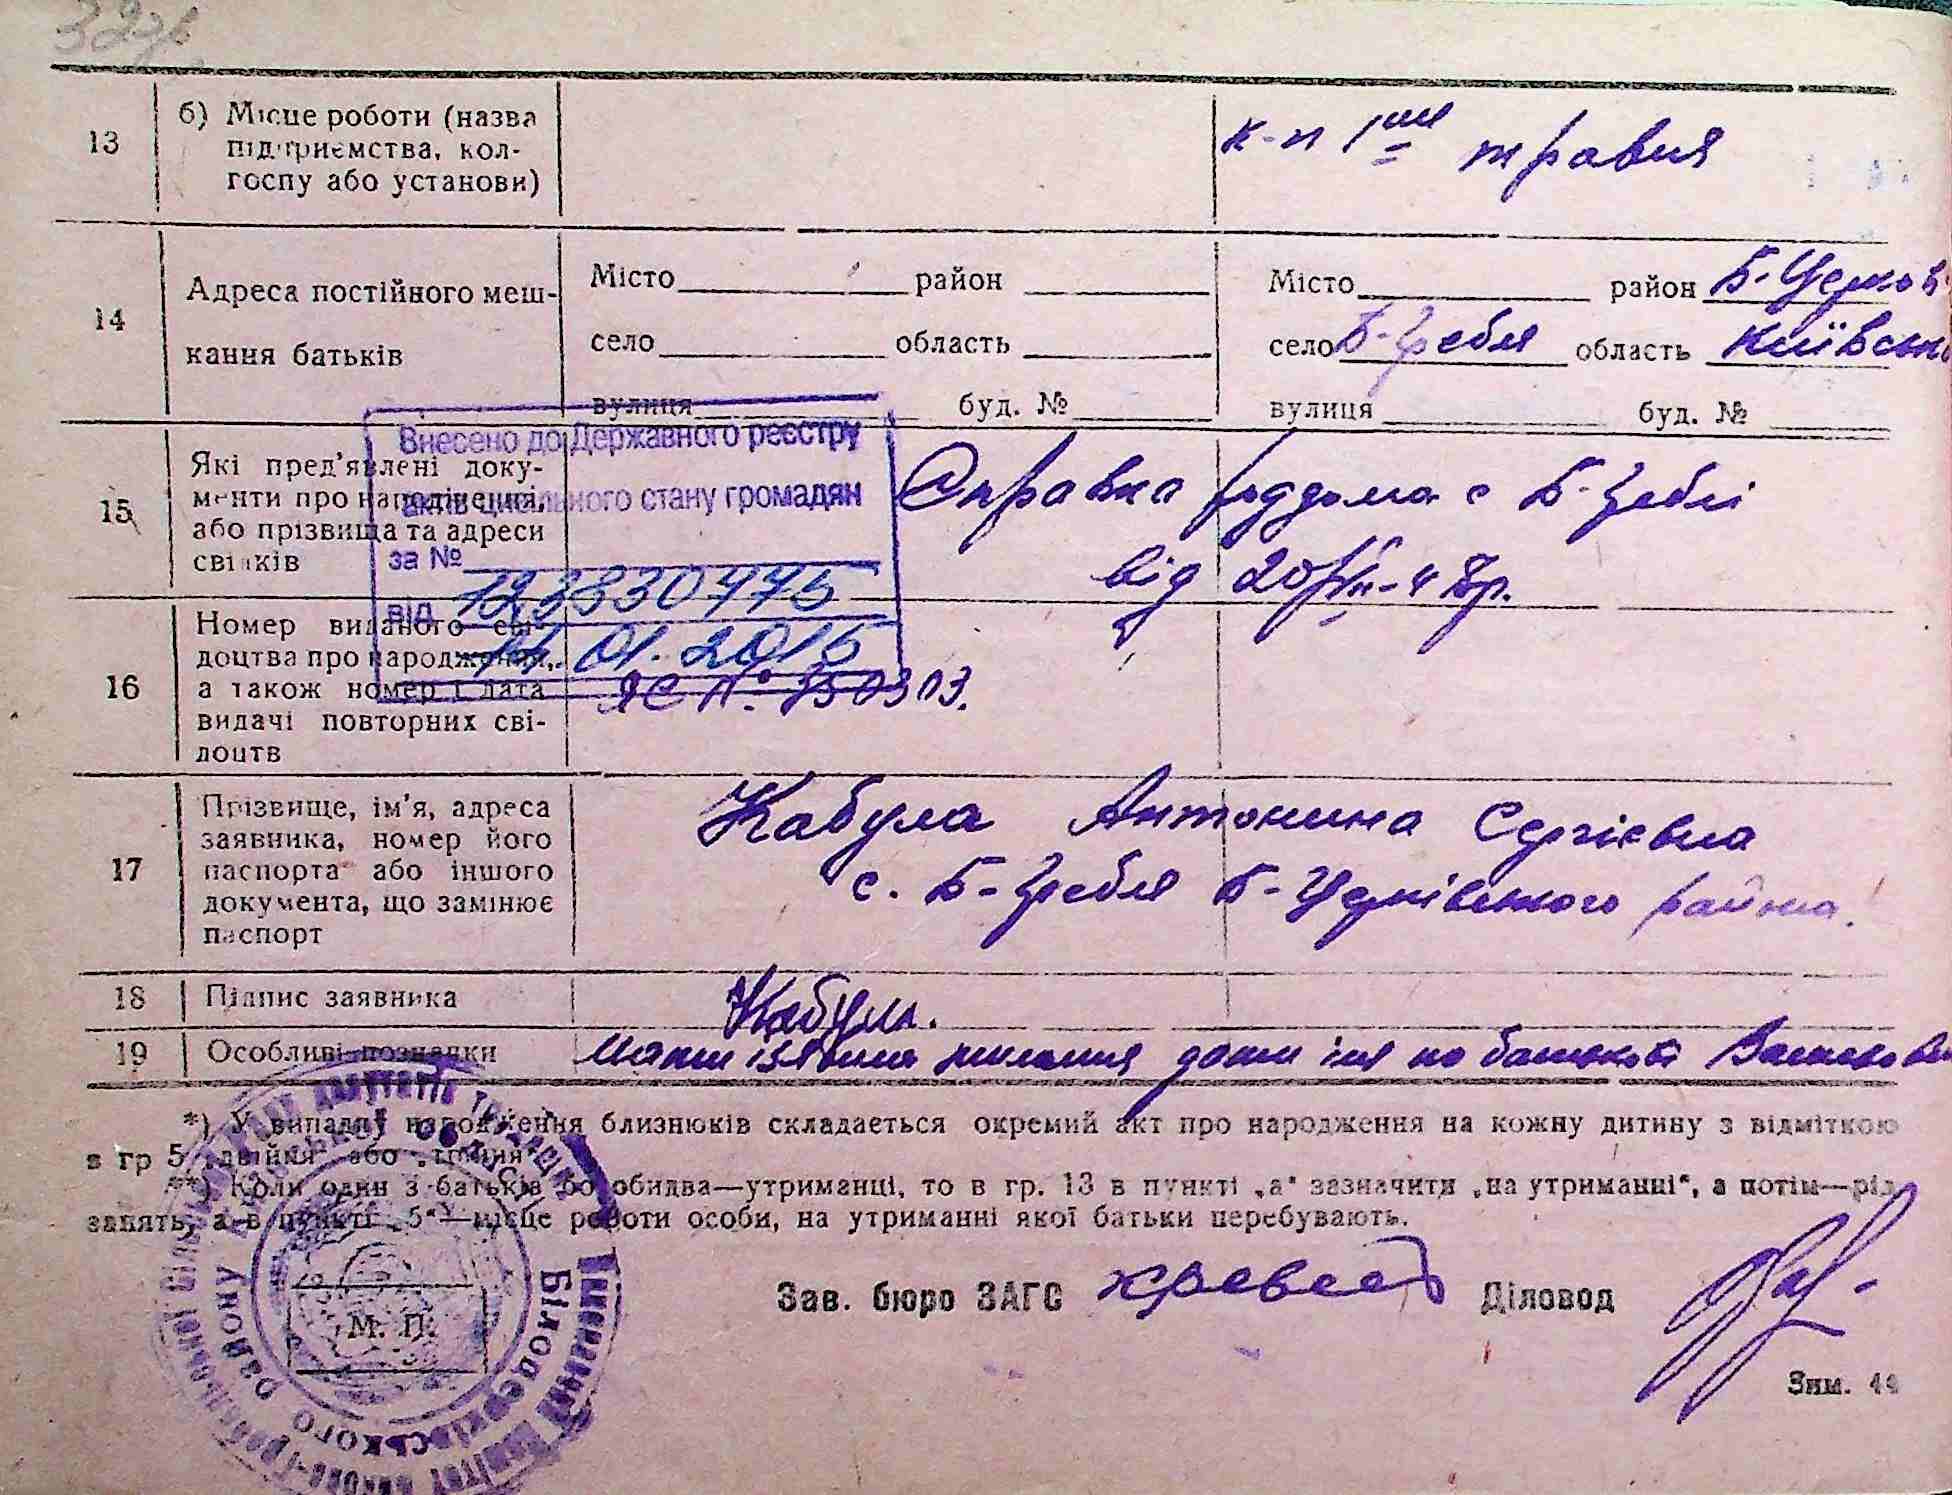 13
б) Місце роботи (назва
підприємства, кол-
госпу або установи)
к-п 1ше травня
14
Адреса постійного меш-
кання батьків
Місто район
село область
вулиця буд. №
Місто район Б-Церков
село Б-Гребля область Київськ
вулиця буд. №
15
Які пред'явлені доку-
менти про народження,
або прізвища та адреси
свідків
Справка роддома с Б-Греблі
від
Внесено до Державного реєстру
актів цивільного стану громадян
за № 123830775
від 14.01.2015
16
Номер виданого сві-
доцтва про народження,
а також номер і дата
видачі повторних сві-
доцтв
ЯС №
17
Прізвище, ім'я, адреса
заявника, номер його
паспорта або іншого
документа, що замінює
паспорт
Кабула Антонина Сергієвна
с. Б-Гребля Б-Церківського района.
18
Підпис заявника
Кабула.
19
Особливі позначки
мати ізявила желання дати імя по батькові
*) У випадку народження близнюків складається окремий акт про народження на кожну дитину з відміткою
в гр 5 „двійня" або „трійня"
**) Коли один з батьків бо обидва—утриманці, то в гр. 13 в пункті „а" зазначити „на утриманні", а потім—рід
занять, а в пункті „б"—місце роботи особи, на утриманні якої батьки перебувають.
М. П.
Виконавчий комітет
Білоцерківського району
Зав. бюро ЗАГС Діловод
Зим. 44